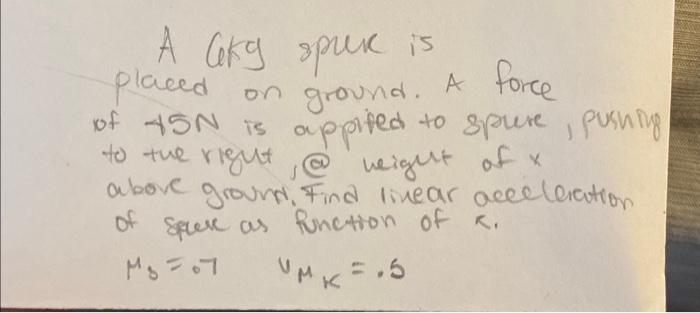 A 6kg spere is
placed on ground. A force
of 45N is applied to spere, pushing
to the right, @ height of x
above ground. Find linear acceleration
of spere as function of x.
μs = .7 μK = .5